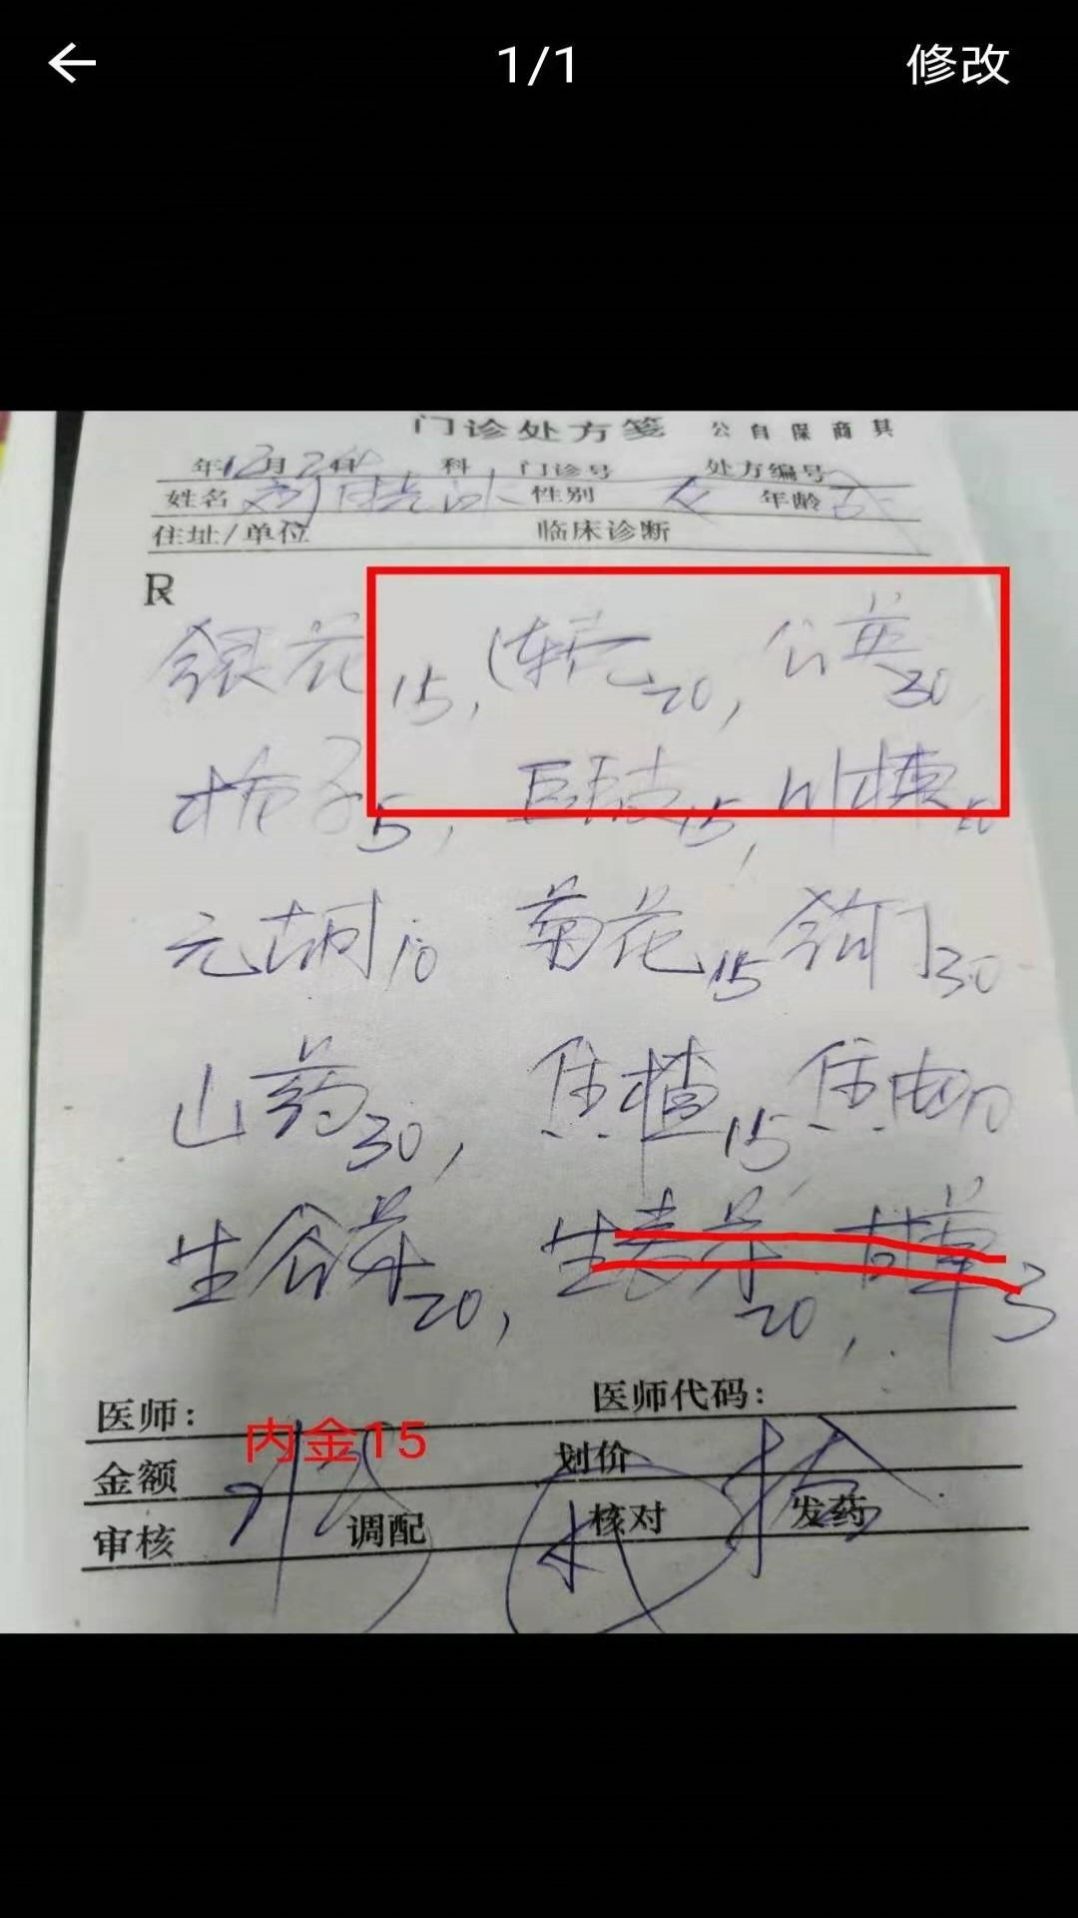 1/1 修改
门诊处方笺 公自保商其
年12月24日 科 门诊号 处方编号
姓名 刘 性别 女 年龄
住址/单位 临床诊断
R
银花15, 连壳20, 公英30
栀子5, 15, 川楝10
元胡10 菊花15 钩丁30
山药30, 焦楂15 焦曲10
生谷芽20, 生麦芽20, 甘草3
医师: 医师代码:
内金15
金额 划价
审核 调配 核对 发药